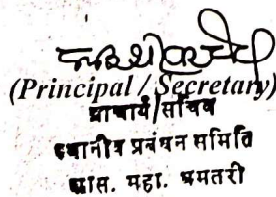 (Principal / Secretary)
प्राचार्य/सचिव
स्थानीय प्रबंधन समिति
शास. महा. धमतरी